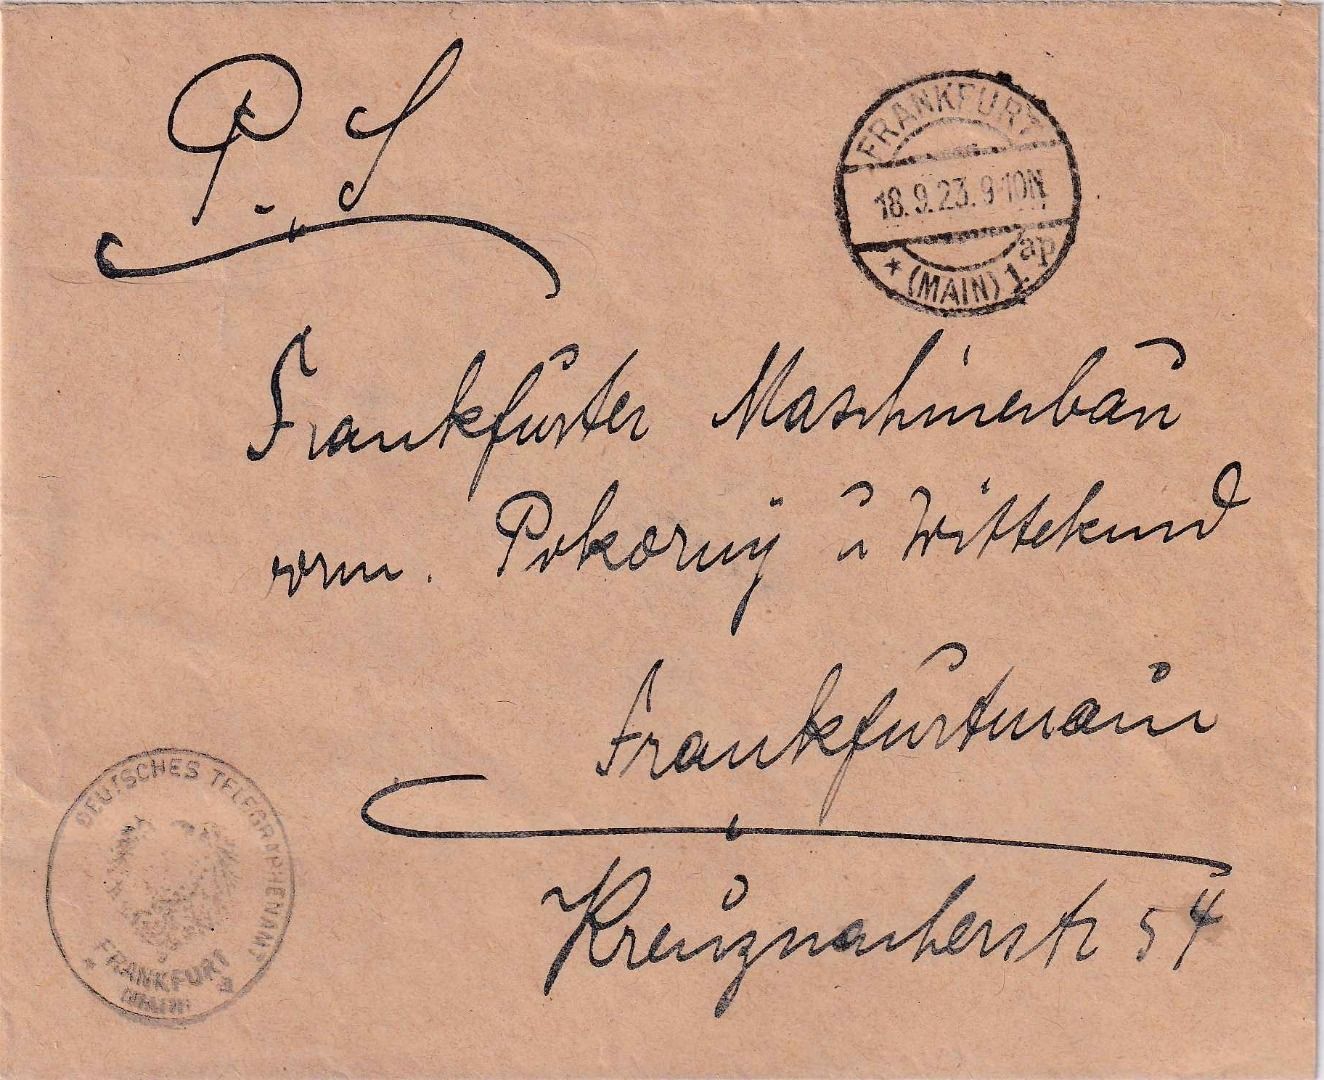 P. S
FRANKFURT
18.9.23.9-10N
* (MAIN) 1. ap
Frankfurter Maschinenbau
vorm. Pokorny u Wittekind
Frankfurtmain
Kreuznacherstr 54
DEUTSCHES TELEGRAPHENAMT
* FRANKFURT a
(MAIN)